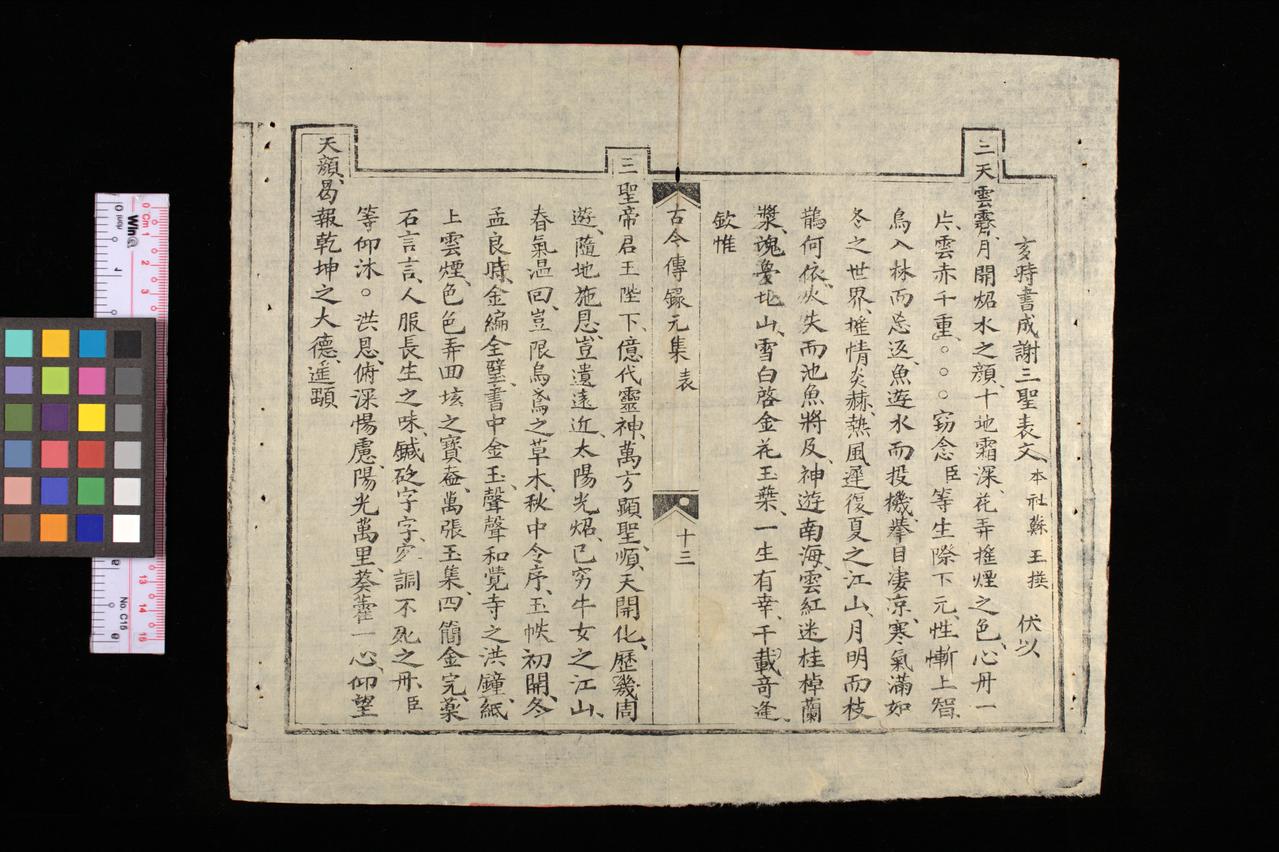 亥時書成謝三聖表文、本社蘇王撰 伏以
三天雲霽、月開炤水之顔、十地霜深、花弄摧煙之色、心丹一
片、雲赤千重。○○窃念臣等生際下元、性慚上智、
鳥入林而忘返、魚遊水而投機、擧目凄凉、寒氣滿如
冬之世界、摧情炎赫、熱風遲復夏之江山、月明而枝
鵲何依、火失而池魚將及、神遊南海、雲紅迷桂棹蘭
槳、魂夢北山、雪白啓金花玉葉、一生有幸、千載奇逢、
欽惟
古今傳錄元集 表
十三
三聖帝君玉陛下、億代靈神、萬方顯聖、順天開化、歷幾周
遊、隨地施恩、豈遺遠近、太陽光炤、已穷牛女之江山、
春氣温回、豈限烏鳶之草木、秋中令序、玉帙初開、冬
孟良時、金編全璧、書中金玉、聲聲和覺寺之洪鐘、紙
上雲煙、色色弄四垓之寶奩、萬張玉集、四簡金完、藥
石言言、人服長生之味、鍼砭字字、家詞不死之丹、臣
等仰沐○洪恩、俯深惕慮、陽光萬里、葵藿一心、仰望
天顔、曷報乾坤之大德、遥頭